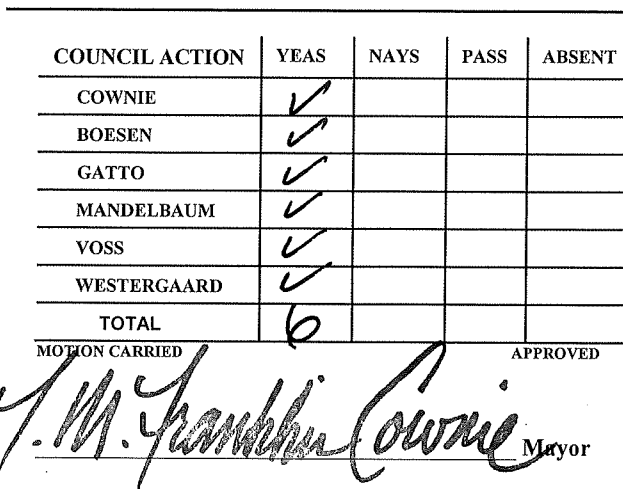 COUNCIL ACTION YEAS NAYS PASS ABSENT
COWNIE ✓
BOESEN ✓
GATTO ✓
MANDELBAUM ✓
VOSS ✓
WESTERGAARD ✓
TOTAL 6
MOTION CARRIED APPROVED
T. M. Franklin Cownie Mayor